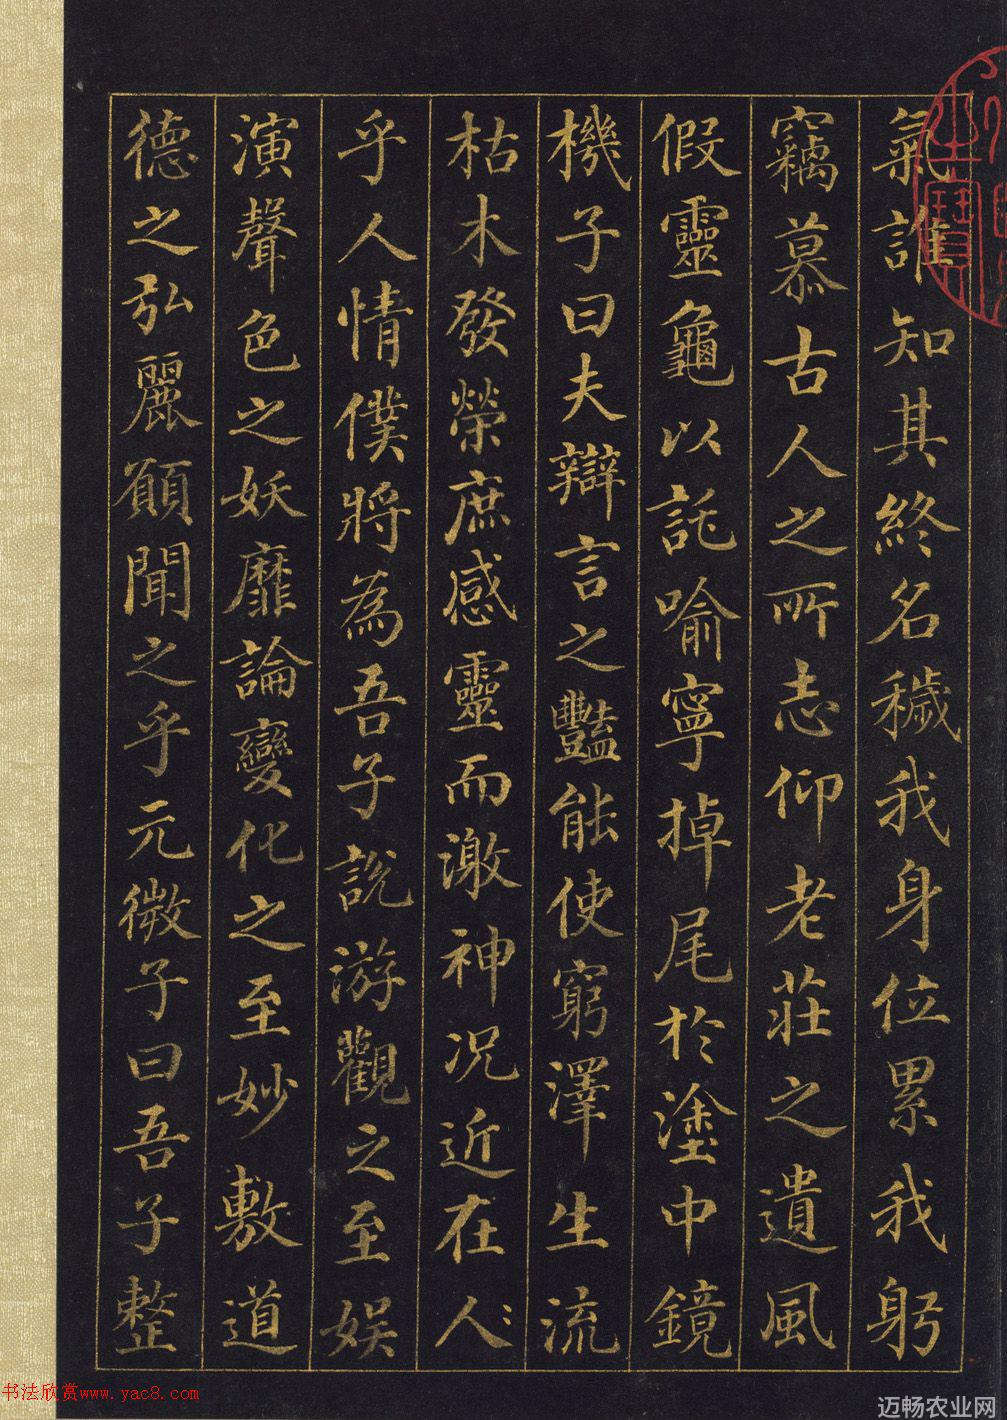 氣誰知其終名穢我身位累我躬
竊慕古人之所志仰老莊之遺風
假靈龜以託喻寧掉尾於塗中鏡
機子曰夫辯言之豔能使窮澤生流
枯木發榮庶感靈而激神況近在人
乎人情僕將為吾子說游觀之至娛
演聲色之妖靡論變化之至妙敷道
德之弘麗願聞之乎元微子曰吾子整
书法欣赏www.yac8.com
迈畅农业网